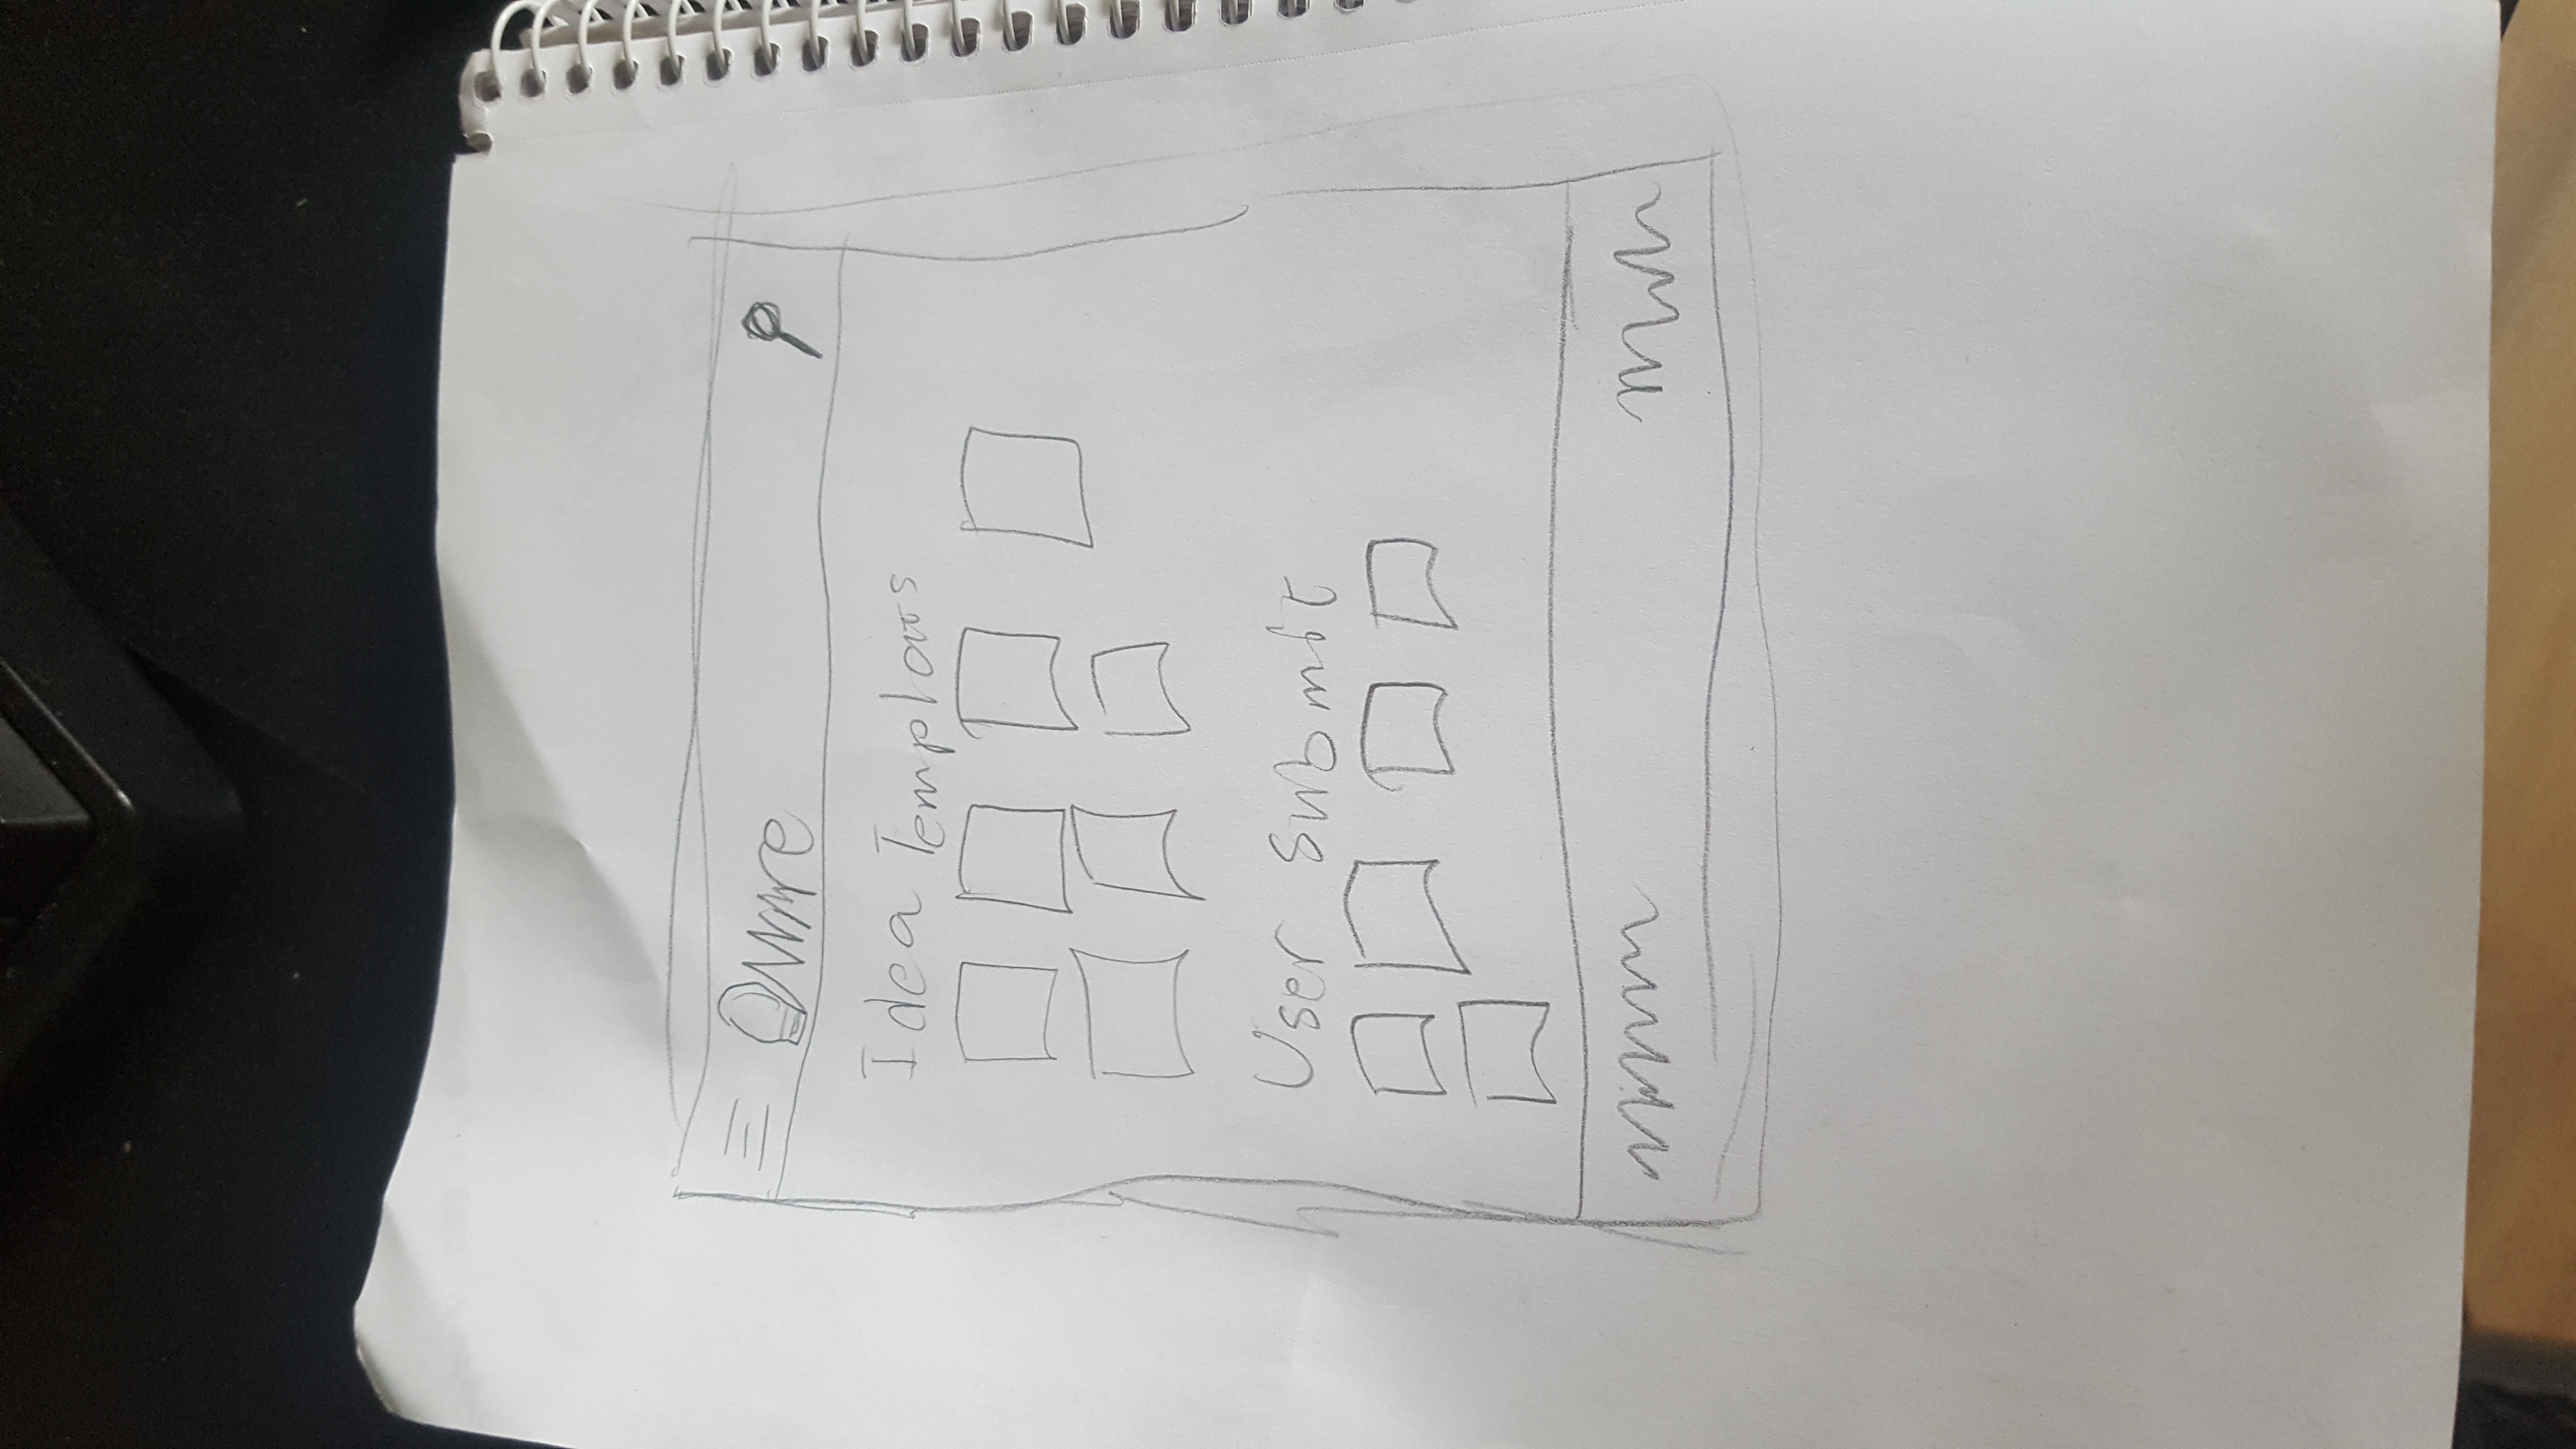 Idea Templats
User Submit